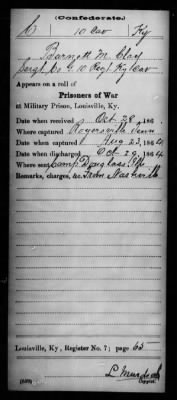 (Confederate.)
C 10 Cav Ky
Barnett M. Clay
Sergt Co. G. 10 Regt Ky Cav
Appears on a roll of
Prisoners of War
at Military Prison, Louisville, Ky.
Date when received Oct 28, 186
Where captured Rogersville Tenn
Date when captured Aug 23, 1864
Date when discharged Oct 29, 1864
Where sent Camp Douglas Ills
Remarks, charges, &c. From Nashville
Louisville, Ky., Register No. 7; page 65
L. Murdock
Copyist.